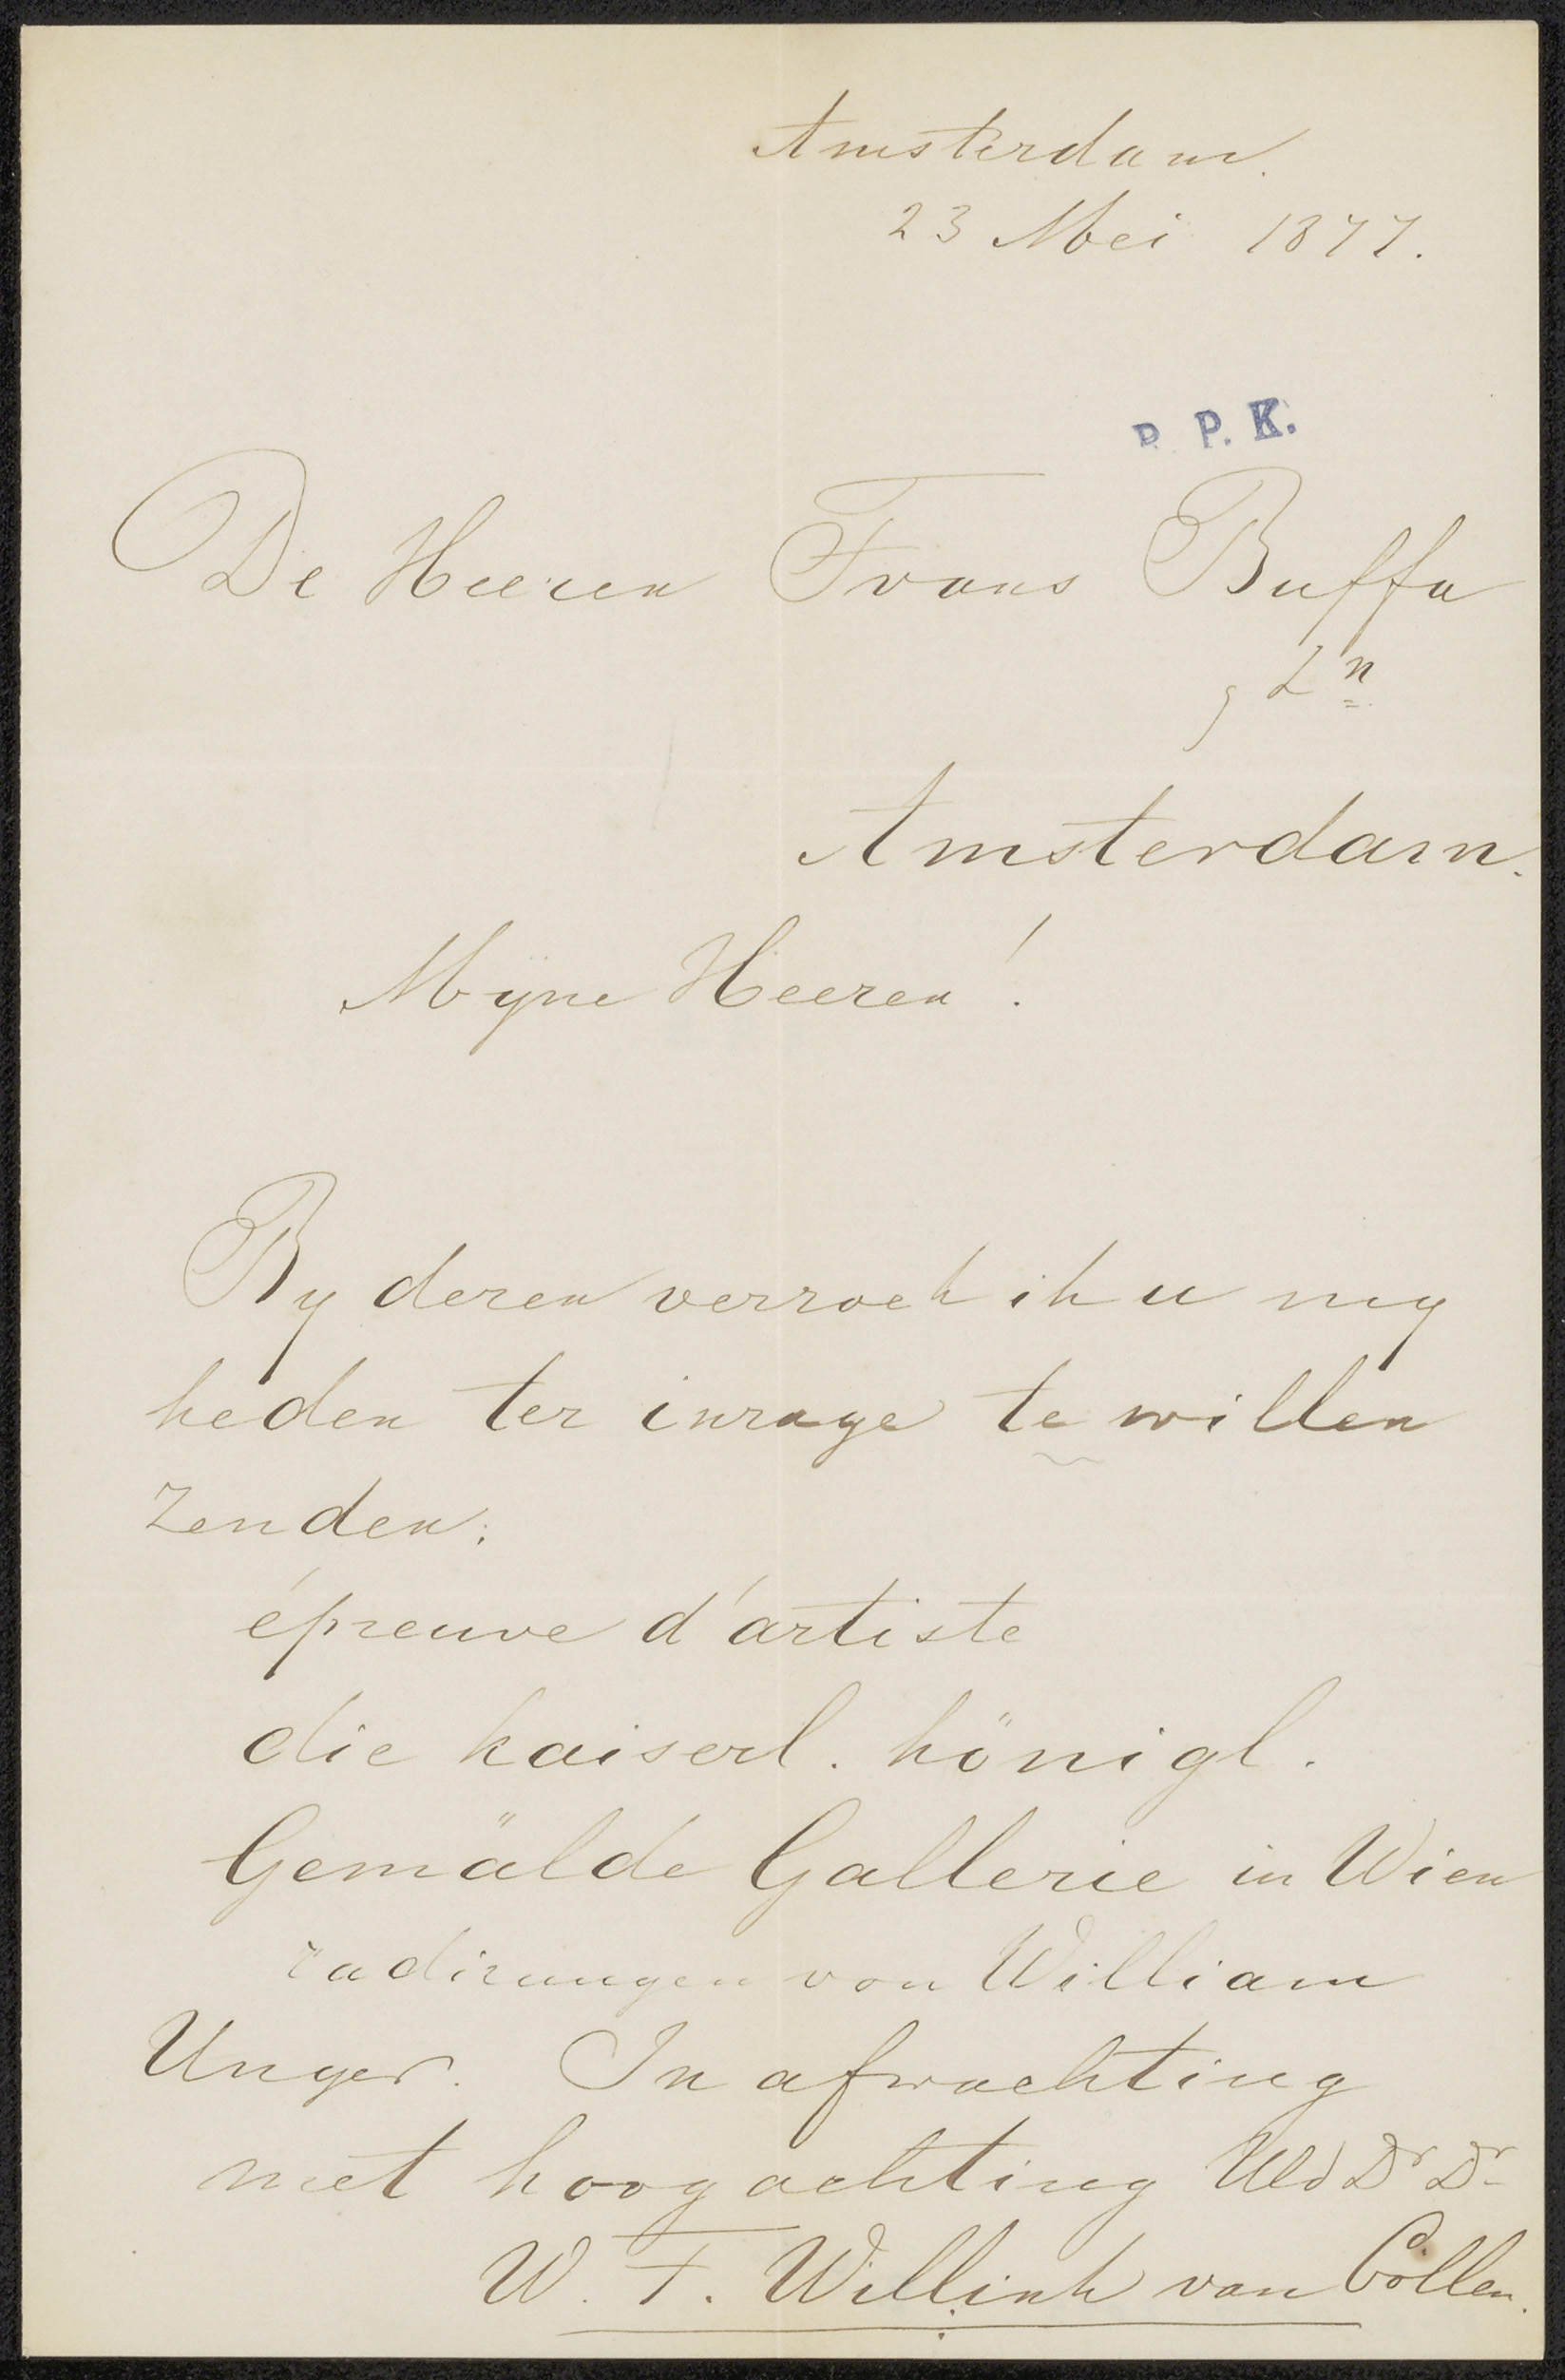 Amsterdam.
23 Mei 1877.
R. P. K.
De Heeren Frans Buffa
& Zn
Amsterdam.
Myne Heeren!
By dezen verzoek ik u my
heden ter inzage te willen
zenden:
épreuve d'artiste
die kaiserl. königl.
Gemälde Gallerie in Wien
radirungen von William
Unger. In afwachting
met hoogachting UEd Dr Dr
W. F. Willink van Collen.